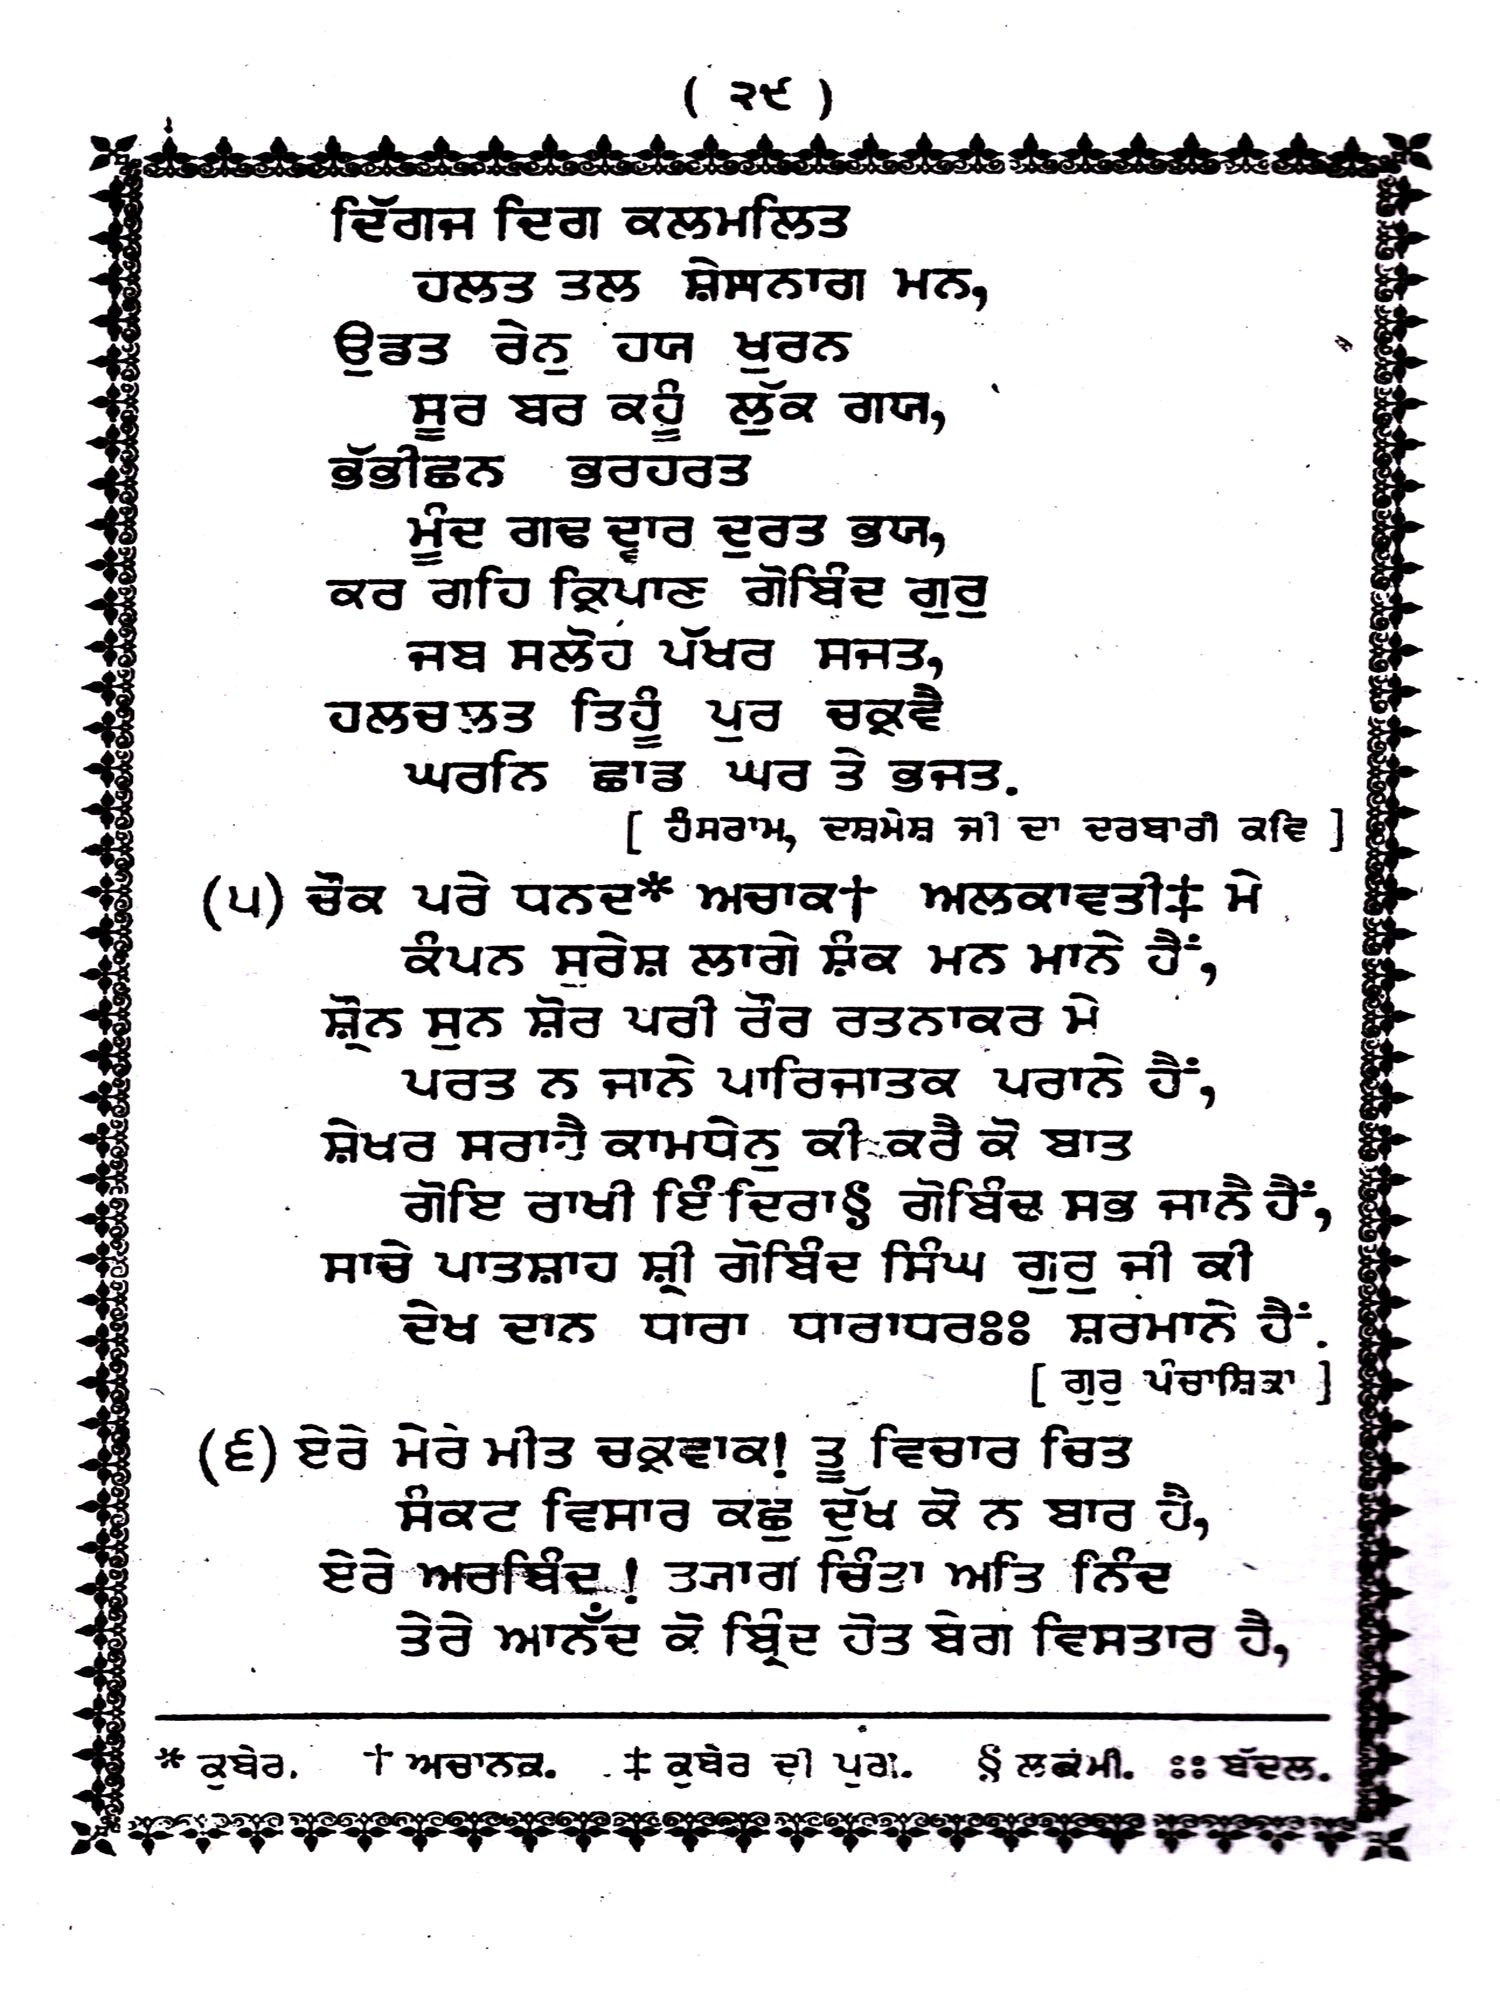 ( ੨੯ )
ਦਿੱਗਜ ਦਿਗ ਕਲਮਲਿਤ
ਹਲਤ ਤਲ ਸ਼ੇਸਨਾਗ ਮਨ,
ਉਡਤ ਰੇਨੁ ਹਯ ਖੁਰਨ
ਸੂਰ ਬਰ ਕਹੂੰ ਲੁੱਕ ਗਯ,
ਭੱਭੀਛਨ ਭਰਹਰਤ
ਮੂੰਦ ਗਢ ਦ੍ਵਾਰ ਦੁਰਤ ਭਯ,
ਕਰ ਗਹਿ ਕ੍ਰਿਪਾਣ ਗੋਬਿੰਦ ਗੁਰੁ
ਜਬ ਸਲੋਹ ਪੱਖਰ ਸਜਤ,
ਹਲਚਲਤ ਤਿਹੂੰ ਪੁਰ ਚਕ੍ਰਵੈ
ਘਰਨਿ ਛਾਡ ਘਰ ਤੇ ਭਜਤ.
[ ਹੰਸਰਾਮ, ਦਸ਼ਮੇਸ਼ ਜੀ ਦਾ ਦਰਬਾਰੀ ਕਵਿ ]
(੫) ਚੌਕ ਪਰੇ ਧਨਦ* ਅਚਾਕ† ਅਲਕਾਵਤੀ‡ ਮੇ
ਕੰਪਨ ਸੁਰੇਸ਼ ਲਾਗੇ ਸ਼ੰਕ ਮਨ ਮਾਨੇ ਹੈਂ,
ਸ਼੍ਰੌਨ ਸੁਨ ਸ਼ੋਰ ਪਰੀ ਰੌਰ ਰਤਨਾਕਰ ਮੇ
ਪਰਤ ਨ ਜਾਨੇ ਪਾਰਿਜਾਤਕ ਪਰਾਨੇ ਹੈਂ,
ਸ਼ੇਖਰ ਸਰਾਹੈ ਕਾਮਧੇਨੁ ਕੀ ਕਰੈ ਕੋ ਬਾਤ
ਗੋਇ ਰਾਖੀ ਇੰਦਿਰਾ§ ਗੋਬਿੰਦ ਸਭ ਜਾਨੈ ਹੈਂ,
ਸਾਚੇ ਪਾਤਸ਼ਾਹ ਸ਼੍ਰੀ ਗੋਬਿੰਦ ਸਿੰਘ ਗੁਰੁ ਜੀ ਕੀ
ਦੇਖ ਦਾਨ ਧਾਰਾ ਧਾਰਾਧਰ⁚⁚ ਸ਼ਰਮਾਨੇ ਹੈਂ.
[ ਗੁਰੁ ਪੰਚਾਸ਼ਿਕਾ ]
(੬) ਏਰੇ ਮੇਰੇ ਮੀਤ ਚਕ੍ਰਵਾਕ! ਤੂ ਵਿਚਾਰ ਚਿਤ
ਸੰਕਟ ਵਿਸਾਰ ਕਛੁ ਦੁੱਖ ਕੋ ਨ ਬਾਰ ਹੈ,
ਏਰੇ ਅਰਬਿੰਦ! ਤ੍ਯਾਗ ਚਿੰਤਾ ਅਤਿ ਨਿੰਦ
ਤੇਰੇ ਆਨੰਦ ਕੋ ਬ੍ਰਿੰਦ ਹੋਤ ਬੇਗ ਵਿਸਤਾਰ ਹੈ,
* ਕੁਬੇਰ. † ਅਚਾਨਕ. ‡ ਕੁਬੇਰ ਦੀ ਪੁਰੀ. § ਲਕ੍ਸ਼ਮੀ. ⁚⁚ ਬੱਦਲ.